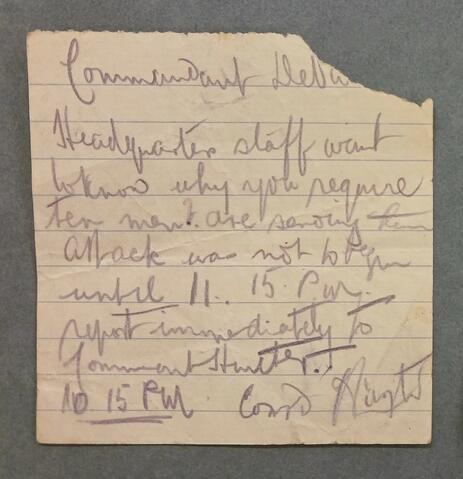 Commandant DeVa
Headquarters staff want
to know why you require
ten men? are sending them
attack was not to begin
until 11. 15 P.M.
report immediately to
Commant Hunter.
10 15 PM Comd